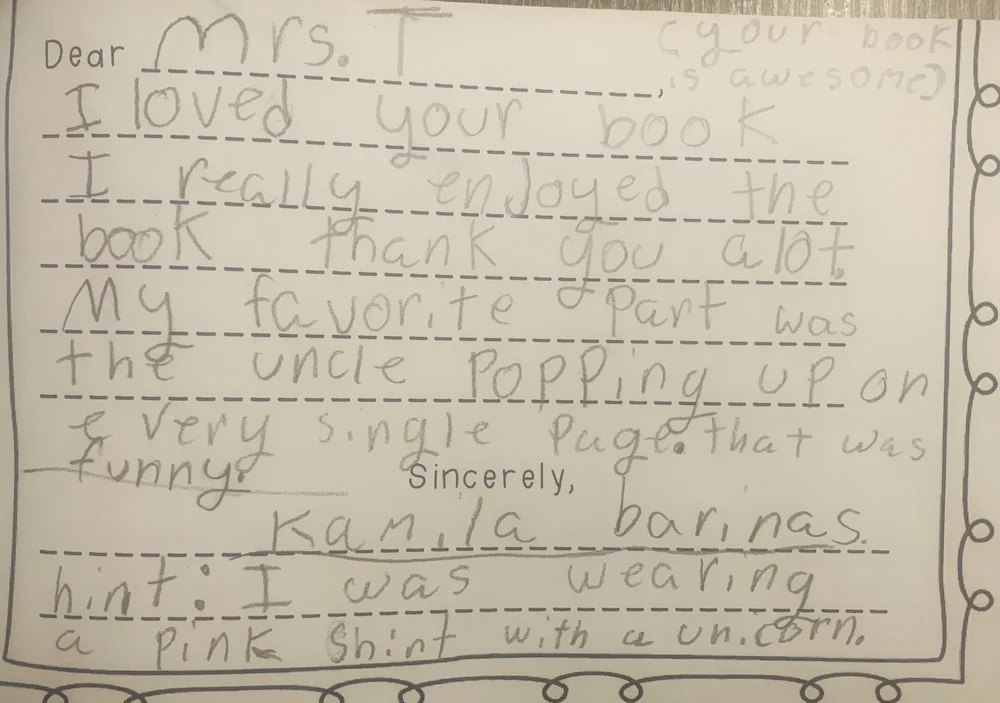 Dear Mrs. T,
(your book
is awesome)
I loved your book
I really enjoyed the
book thank you alot.
My favorite Part was
the uncle PoPPing up on
every single Page. that was
funny.
Sincerely,
Kamila barinas.
hint: I was wearing
a Pink Shint with a unicorn.